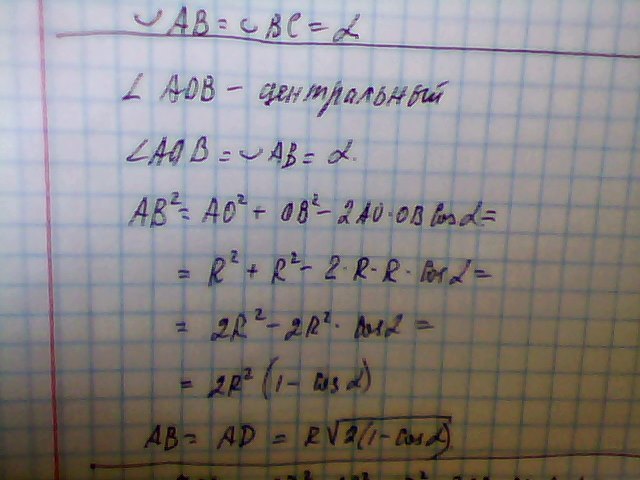 ◡AB = ◡BC = α
∠ AOB – центральный
∠AOB = ◡AB = α.
AB² = AO² + OB² – 2AO·OB cosα =
= R² + R² – 2·R·R·cosα =
= 2R² – 2R²·cosα =
= 2R²(1 – cosα)
AB = AD = R√2(1–cosα)